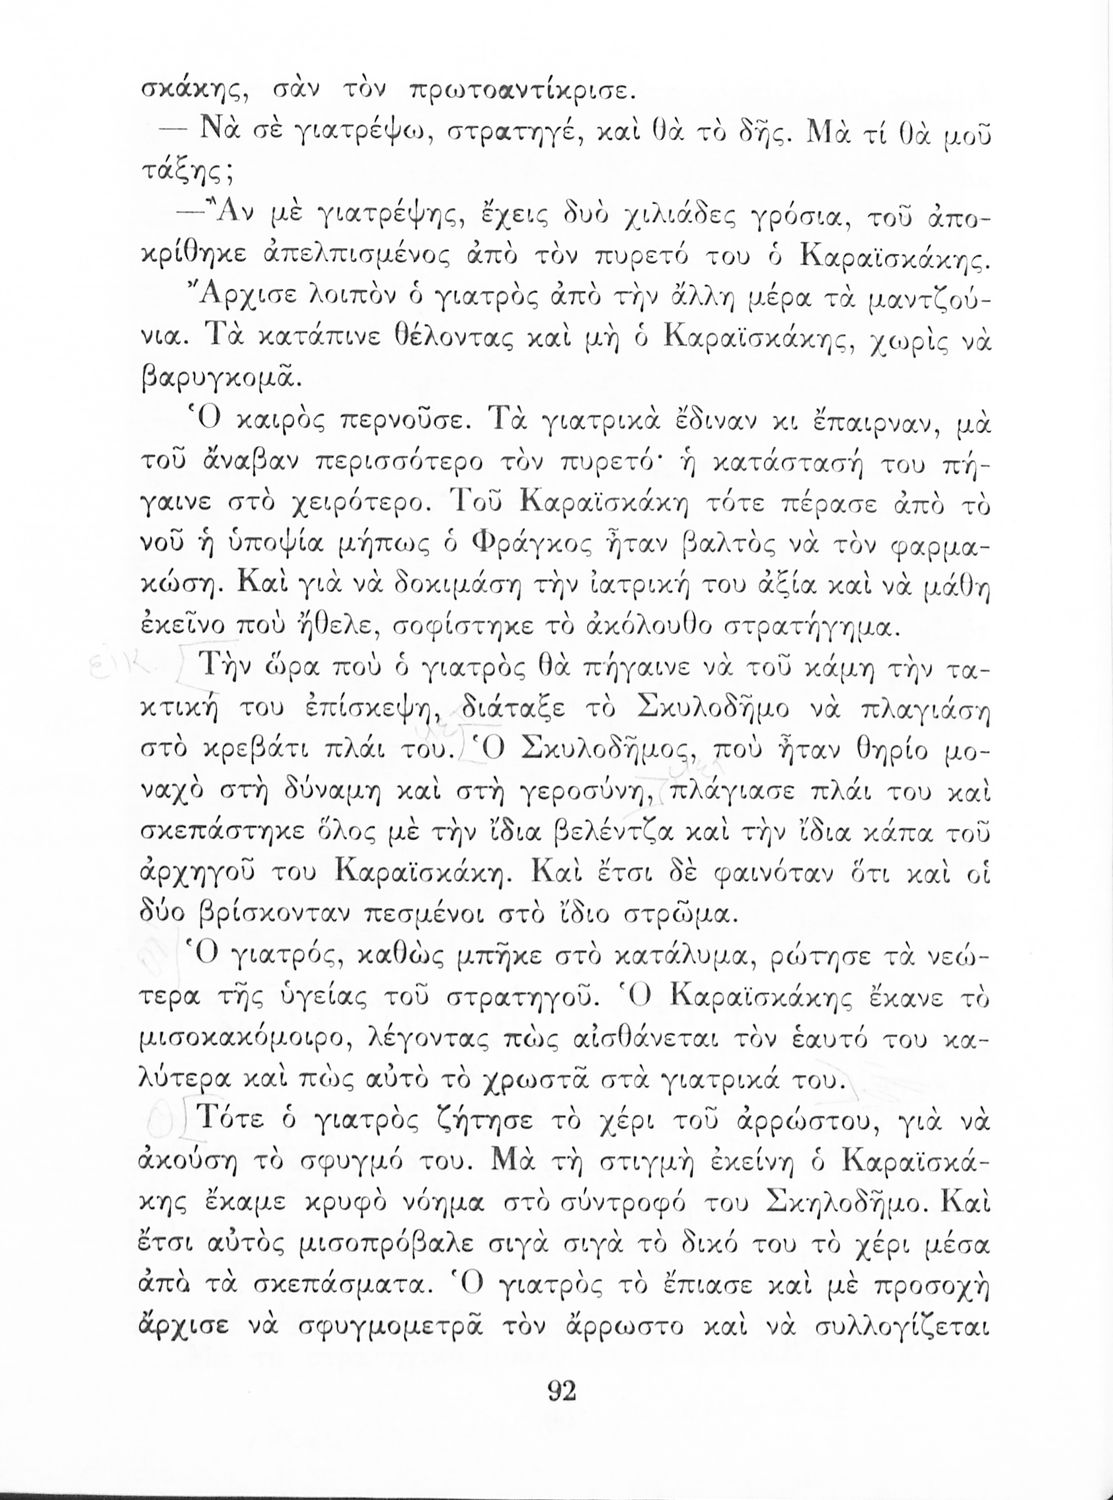 σκάκης, σὰν τὸν πρωτοαντίκρισε.
— Νὰ σὲ γιατρέψω, στρατηγέ, καὶ θὰ τὸ δῆς. Μὰ τί θὰ μοῦ
τάξης;
—Ἂν μὲ γιατρέψης, ἔχεις δυὸ χιλιάδες γρόσια, τοῦ ἀπο-
κρίθηκε ἀπελπισμένος ἀπὸ τὸν πυρετό του ὁ Καραϊσκάκης.
Ἄρχισε λοιπὸν ὁ γιατρὸς ἀπὸ τὴν ἄλλη μέρα τὰ μαντζού-
νια. Τὰ κατάπινε θέλοντας καὶ μὴ ὁ Καραϊσκάκης, χωρὶς νὰ
βαρυγκομᾶ.
Ὁ καιρὸς περνοῦσε. Τὰ γιατρικὰ ἔδιναν κι ἔπαιρναν, μὰ
τοῦ ἄναβαν περισσότερο τὸν πυρετό· ἡ κατάστασή του πή-
γαινε στὸ χειρότερο. Τοῦ Καραϊσκάκη τότε πέρασε ἀπὸ τὸ
νοῦ ἡ ὑποψία μήπως ὁ Φράγκος ἦταν βαλτὸς νὰ τὸν φαρμα-
κώση. Καὶ γιὰ νὰ δοκιμάση τὴν ἰατρική του ἀξία καὶ νὰ μάθη
ἐκεῖνο ποὺ ἤθελε, σοφίστηκε τὸ ἀκόλουθο στρατήγημα.
εἰκ. Τὴν ὥρα ποὺ ὁ γιατρὸς θὰ πήγαινε νὰ τοῦ κάμη τὴν τα-
κτική του ἐπίσκεψη, διάταξε τὸ Σκυλοδῆμο νὰ πλαγιάση
στὸ κρεβάτι πλάι του. Ὁ Σκυλοδῆμος, ποὺ ἦταν θηρίο μο-
ναχὸ στὴ δύναμη καὶ στὴ γεροσύνη, πλάγιασε πλάι του καὶ
σκεπάστηκε ὅλος μὲ τὴν ἴδια βελέντζα καὶ τὴν ἴδια κάπα τοῦ
ἀρχηγοῦ του Καραϊσκάκη. Καὶ ἔτσι δὲ φαινόταν ὅτι καὶ οἱ
δύο βρίσκονταν πεσμένοι στὸ ἴδιο στρῶμα.
Ὁ γιατρός, καθὼς μπῆκε στὸ κατάλυμα, ρώτησε τὰ νεώ-
τερα τῆς ὑγείας τοῦ στρατηγοῦ. Ὁ Καραϊσκάκης ἔκανε τὸ
μισοκακόμοιρο, λέγοντας πὼς αἰσθάνεται τὸν ἑαυτό του κα-
λύτερα καὶ πὼς αὐτὸ τὸ χρωστᾶ στὰ γιατρικά του.
Τότε ὁ γιατρὸς ζήτησε τὸ χέρι τοῦ ἀρρώστου, γιὰ νὰ
ἀκούση τὸ σφυγμό του. Μὰ τὴ στιγμὴ ἐκείνη ὁ Καραϊσκά-
κης ἔκαμε κρυφὸ νόημα στὸ σύντροφό του Σκηλοδῆμο. Καὶ
ἔτσι αὐτὸς μισοπρόβαλε σιγὰ σιγὰ τὸ δικό του τὸ χέρι μέσα
ἀπὸ τὰ σκεπάσματα. Ὁ γιατρὸς τὸ ἔπιασε καὶ μὲ προσοχὴ
ἄρχισε νὰ σφυγμομετρᾶ τὸν ἄρρωστο καὶ νὰ συλλογίζεται
92